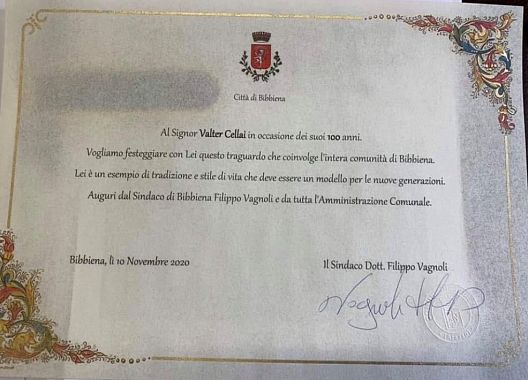 Città di Bibbiena
Al Signor Valter Cellai in occasione dei suoi 100 anni.
Vogliamo festeggiare con Lei questo traguardo che coinvolge l'intera comunità di Bibbiena.
Lei è un esempio di tradizione e stile di vita che deve essere un modello per le nuove generazioni.
Auguri dal Sindaco di Bibbiena Filippo Vagnoli e da tutta l'Amministrazione Comunale.
Bibbiena, lì 10 Novembre 2020
Il Sindaco Dott. Filippo Vagnoli